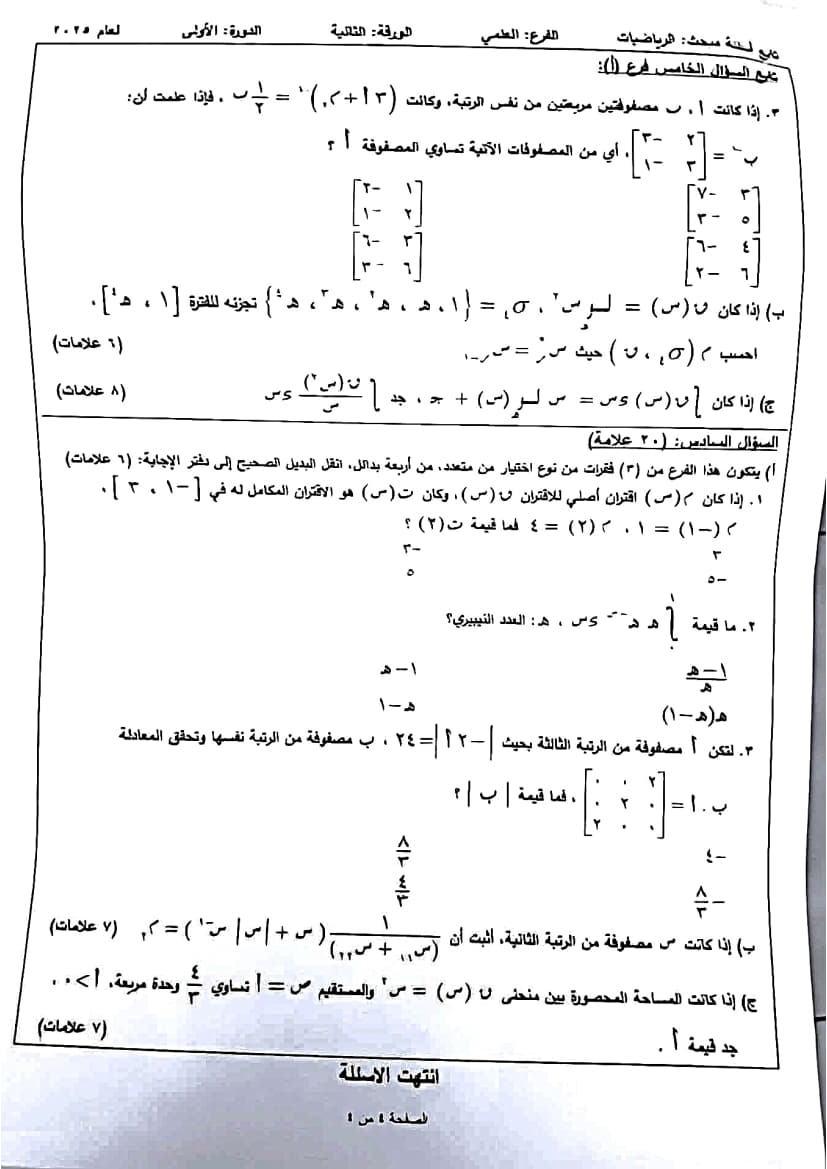 تابع لمادة مبحث: الرياضيات الفرع: العلمي الورقة: الثانية الدورة: الأولى لعام ٢٠٢٥
تابع السؤال الخامس فرع (أ):
٣. إذا كانت أ، ب مصفوفتين مربعتين من نفس الرتبة، وكانت (٣أ + م٢)⁻¹ = ١/٢ ب ، فإذا علمت أن:
ب⁻¹ = [٢ -٣ ٣ -١] ، أي من المصفوفات الآتية تساوي المصفوفة أ ؟
[٣ -٧ ٥ -٣] [١ -٢ ٢ -١]
[٤ -٦ ٦ -٢] [٣ -٦ ٦ -٣]
ب) إذا كان ق(س) = لوهـ س² ، σ٤ = {١، هـ، هـ²، هـ³، هـ⁴} تجزئة للفترة [١، هـ⁴] ،
احسب م(σ٤، ق) حيث س*ر = سر-١ (٦ علامات)
ج) إذا كان ∫ ق(س) دس = س لوهـ(س) + جـ ، جد ∫ ق(س²)/س دس (٨ علامات)
السؤال السادس: (٢٠ علامة)
أ) يتكون هذا الفرع من (٣) فقرات من نوع اختيار من متعدد، من أربعة بدائل، انقل البديل الصحيح إلى دفتر الإجابة: (٦ علامات)
١. إذا كان م(س) اقتران أصلي للاقتران ق(س)، وكان ت(س) هو الاقتران المكامل له في [-١، ٣] ،
م(-١) = ١ ، م(٢) = ٤ فما قيمة ت(٢) ؟
٣ -٣
-٥ ٥
٢. ما قيمة ∫ هـ هـ⁻ˢ دس ، هـ: العدد النيبيري؟
١-هـ/هـ ١-هـ
هـ(هـ-١) هـ-١
٣. لتكن أ مصفوفة من الرتبة الثالثة بحيث |-٢أ| = ٢٤ ، ب مصفوفة من الرتبة نفسها وتحقق المعادلة
ب.أ = [٢ ٠ ٠ ٠ ٢ ٠ ٠ ٠ ٢] ، فما قيمة |ب| ؟
-٤ ٨/٣
-٨/٣ ٤/٣
ب) إذا كانت س مصفوفة من الرتبة الثانية، أثبت أن ١/(س١١ + س٢٢) (س + |س| س⁻¹) = م٢ (٧ علامات)
ج) إذا كانت المساحة المحصورة بين منحنى ق(س) = س² والمستقيم ص = أ تساوي ٤/٣ وحدة مربعة، أ > ٠ ،
جد قيمة أ . (٧ علامات)
انتهت الأسئلة
الصفحة ٤ من ٤